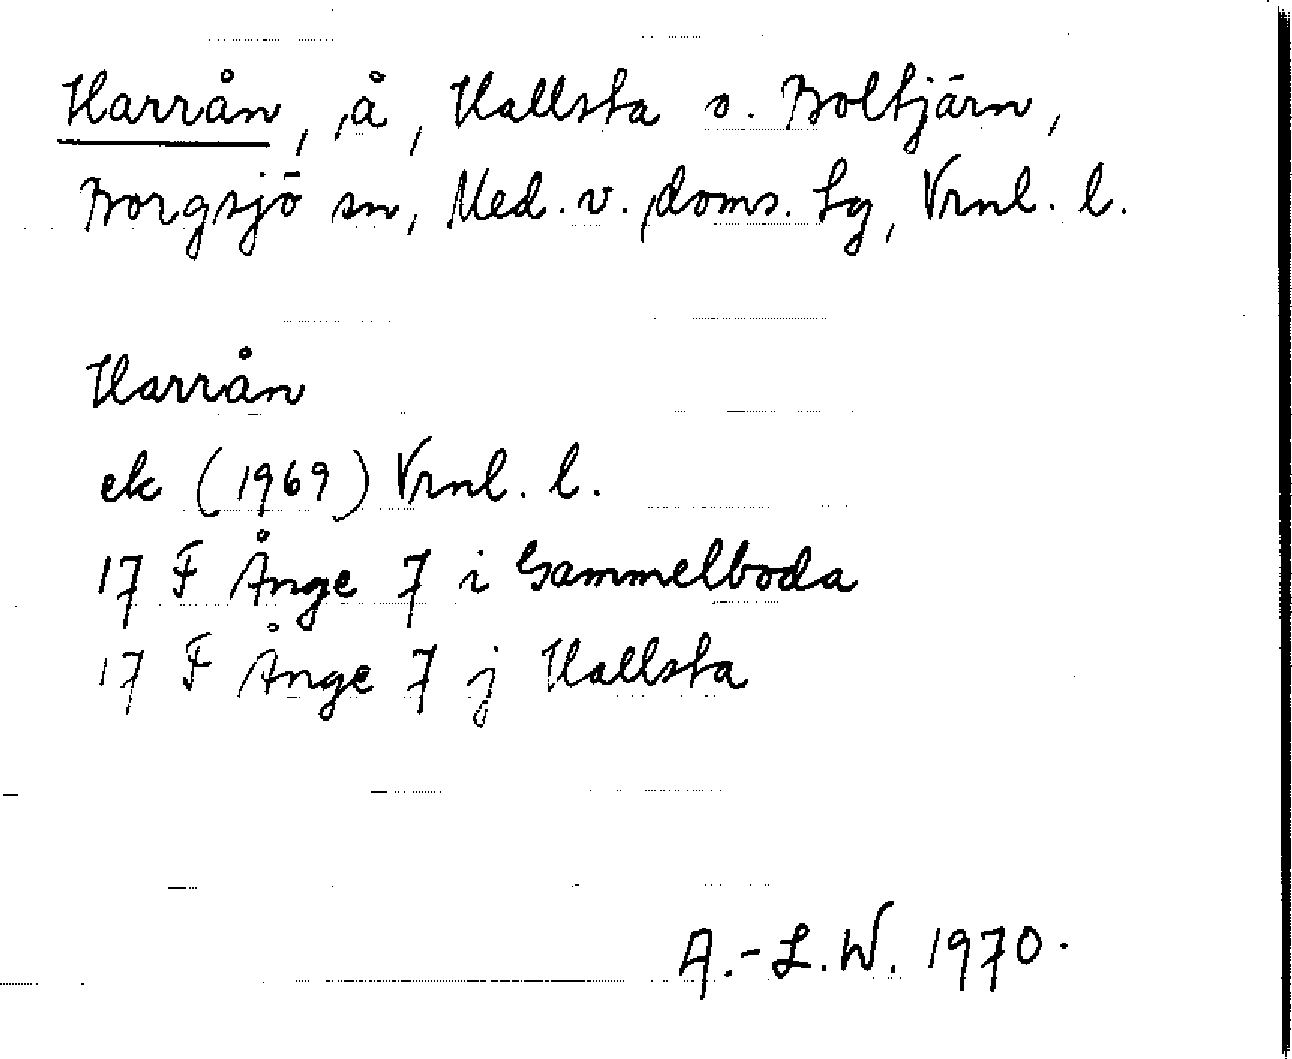 Harrån, å, Hallsta o. Boltjärn,
Borgsjö sn, Med. v. doms. tg, Vrnl. l.
Harrån
ek (1969) Vrnl. l.
17 F Ånge 7 i Gammelboda
17 F Ånge 7 j Hallsta
A.-L.W. 1970.